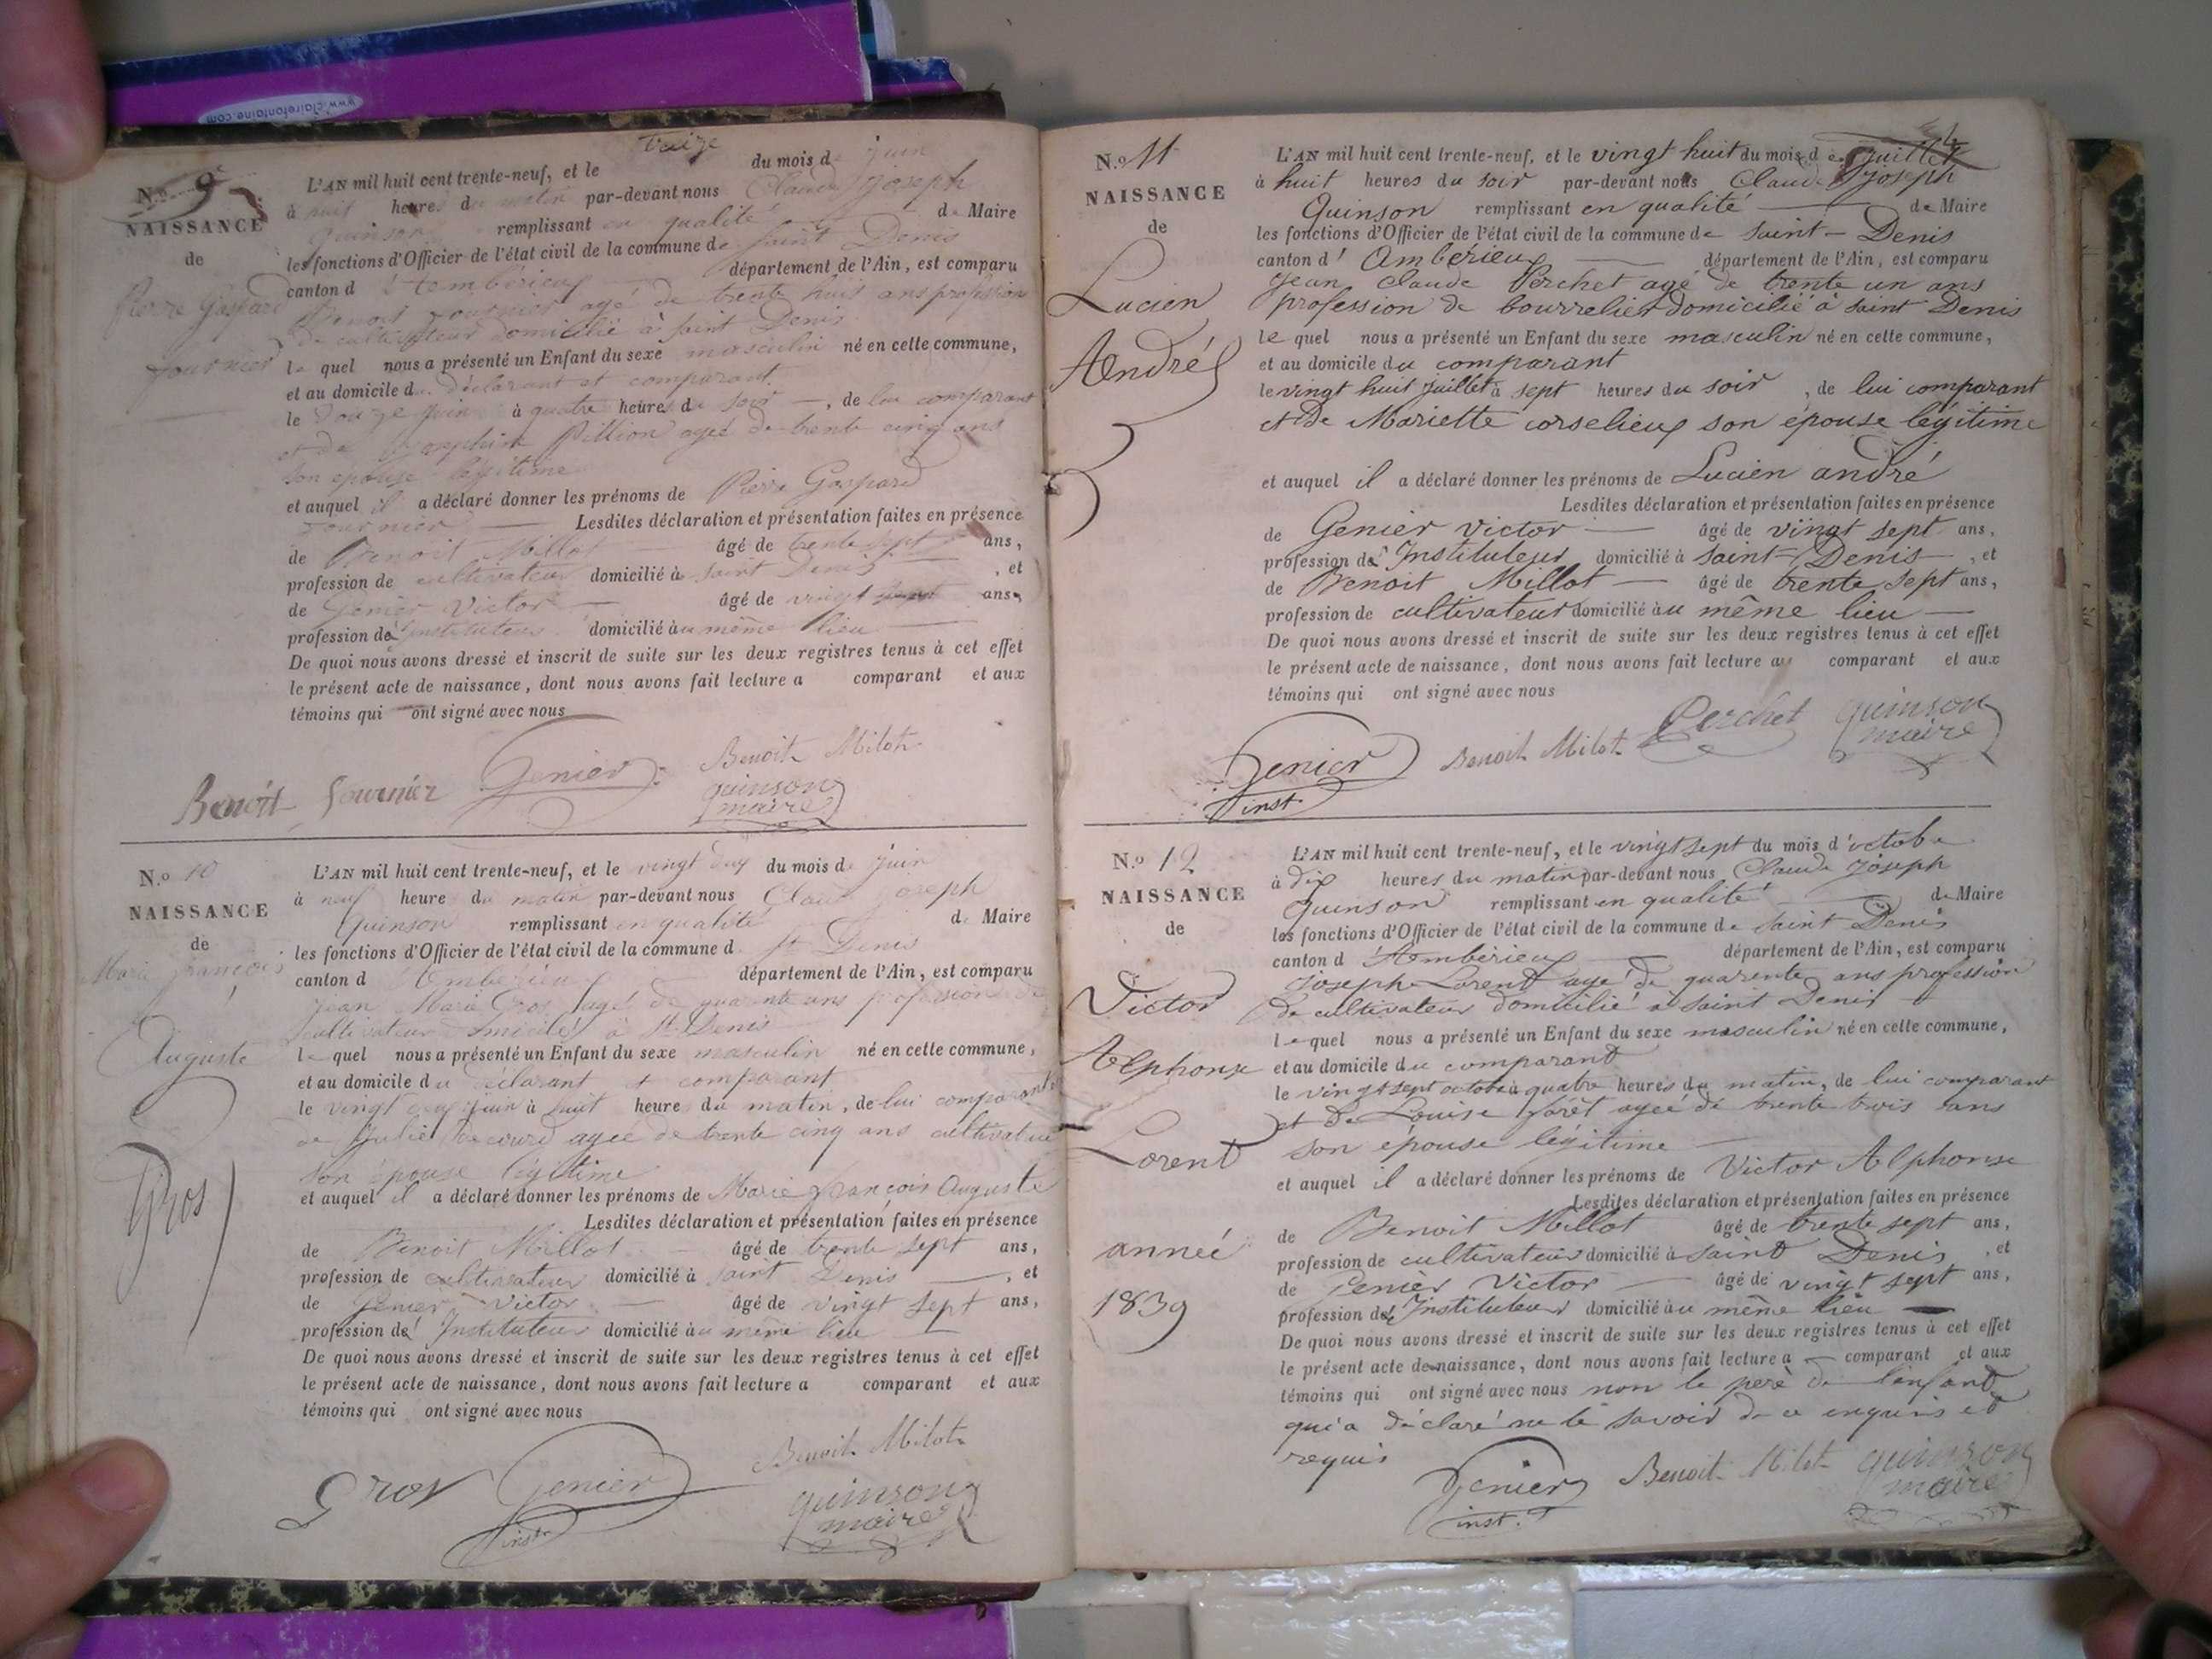 www.clairefontaine.com
N.º 9
NAISSANCE
de
Pierre Gaspard
fournier
treize
L'AN mil huit cent trente-neuf, et le du mois de juin
à huit heures du matin par-devant nous Claude Joseph
Quinson remplissant en qualité de Maire
les fonctions d'Officier de l'état civil de la commune de Saint Denis
canton d'Ambérieux département de l'Ain, est comparu
Benoit fournier agé de trente huit ans profession
de cultivateur domicilié à saint Denis
le quel nous a présenté un Enfant du sexe masculin né en cette commune,
et au domicile du déclarant et comparant
le douze juin à quatre heures du soir, de lui comparant
et de josephine Pillion agée de trente cinq ans
son épouse légitime
et auquel il a déclaré donner les prénoms de Pierre Gaspard
fournier Lesdites déclaration et présentation faites en présence
de Benoit Millot âgé de trente sept ans,
profession de cultivateur domicilié à saint Denis, et
de Genier Victor âgé de vingt sept ans,
profession de instituteur domicilié au même lieu
De quoi nous avons dressé et inscrit de suite sur les deux registres tenus à cet effet
le présent acte de naissance, dont nous avons fait lecture a comparant et aux
témoins qui ont signé avec nous
Benoit fournier Genier Benoit Milot
quinson
maire
N.º 10
NAISSANCE
de
Marie françois
Auguste
Gros
L'AN mil huit cent trente-neuf, et le vingt deux du mois de juin
à neuf heure du matin par-devant nous Claude Joseph
Quinson remplissant en qualité de Maire
les fonctions d'Officier de l'état civil de la commune d St Denis
canton d Ambérieux département de l'Ain, est comparu
Jean Marie Gros agé de quarente ans profession de
cultivateur domicilié à St Denis
le quel nous a présenté un Enfant du sexe masculin né en cette commune,
et au domicile du déclarant et comparant
le vingt deux juin à huit heure du matin, de lui comparant
de Julie agée de trente cinq ans cultivatue
son épouse légitime
et auquel il a déclaré donner les prénoms de Marie françois Auguste
Lesdites déclaration et présentation faites en présence
de Benoit Millot âgé de trente sept ans,
profession de cultivateur domicilié à saint Denis, et
de Genier Victor âgé de vingt sept ans,
profession de Instituteur domicilié au même lieu
De quoi nous avons dressé et inscrit de suite sur les deux registres tenus à cet effet
le présent acte de naissance, dont nous avons fait lecture a comparant et aux
témoins qui ont signé avec nous
Gros Genier Benoit Milot
inst. quinson
maire
N.º 11
NAISSANCE
de
Lucien
André
L'AN mil huit cent trente-neuf, et le vingt huit du mois de juillet
à huit heures du soir par-devant nous Claude Joseph
Quinson remplissant en qualité de Maire
les fonctions d'Officier de l'état civil de la commune de saint-Denis
canton d'Ambérieux département de l'Ain, est comparu
Jean Claude Perchet agé de trente un ans
profession de bourrelier domicilié à saint Denis
le quel nous a présenté un Enfant du sexe masculin né en cette commune,
et au domicile du comparant
le vingt huit juillet à sept heures du soir, de lui comparant
et de Mariette corselieux son épouse légitime
et auquel il a déclaré donner les prénoms de Lucien andré
Lesdites déclaration et présentation faites en présence
de Genier victor âgé de vingt sept ans,
profession de Instituteur domicilié à saint-Denis, et
de Benoit Millot âgé de trente sept ans,
profession de cultivateur domicilié au même lieu
De quoi nous avons dressé et inscrit de suite sur les deux registres tenus à cet effet
le présent acte de naissance, dont nous avons fait lecture au comparant et aux
témoins qui ont signé avec nous
Genier Benoit Milot Perchet quinson
inst. maire
N.º 12
NAISSANCE
de
Victor
Alphonse
Lorent
anneé
1839
L'AN mil huit cent trente-neuf, et le vingt sept du mois d'octobre
à dix heures du matin par-devant nous Claude Joseph
Quinson remplissant en qualité de Maire
les fonctions d'Officier de l'état civil de la commune de saint Denis
canton d Ambérieux département de l'Ain, est comparu
Joseph Lorent agé de quarente ans profession
de cultivateur domicilié à saint Denis
le quel nous a présenté un Enfant du sexe masculin né en cette commune,
et au domicile du comparant
le vingt sept octobre à quatre heures du matin, de lui comparant
et de Louise forêt ageé de trente trois ans
son épouse légitime
et auquel il a déclaré donner les prénoms de Victor Alphonse
Lesdites déclaration et présentation faites en présence
de Benoit Millot âgé de trente sept ans,
profession de cultivateur domicilié à saint Denis, et
de Genier Victor âgé de vingt sept ans,
profession de Instituteur domicilié au même lieu
De quoi nous avons dressé et inscrit de suite sur les deux registres tenus à cet effet
le présent acte de naissance, dont nous avons fait lecture a comparant et aux
témoins qui ont signé avec nous non le père de l'enfant
qui a déclaré ne le savoir de ce enquis et
requis
Genier Benoit Milot quinson
inst. maire